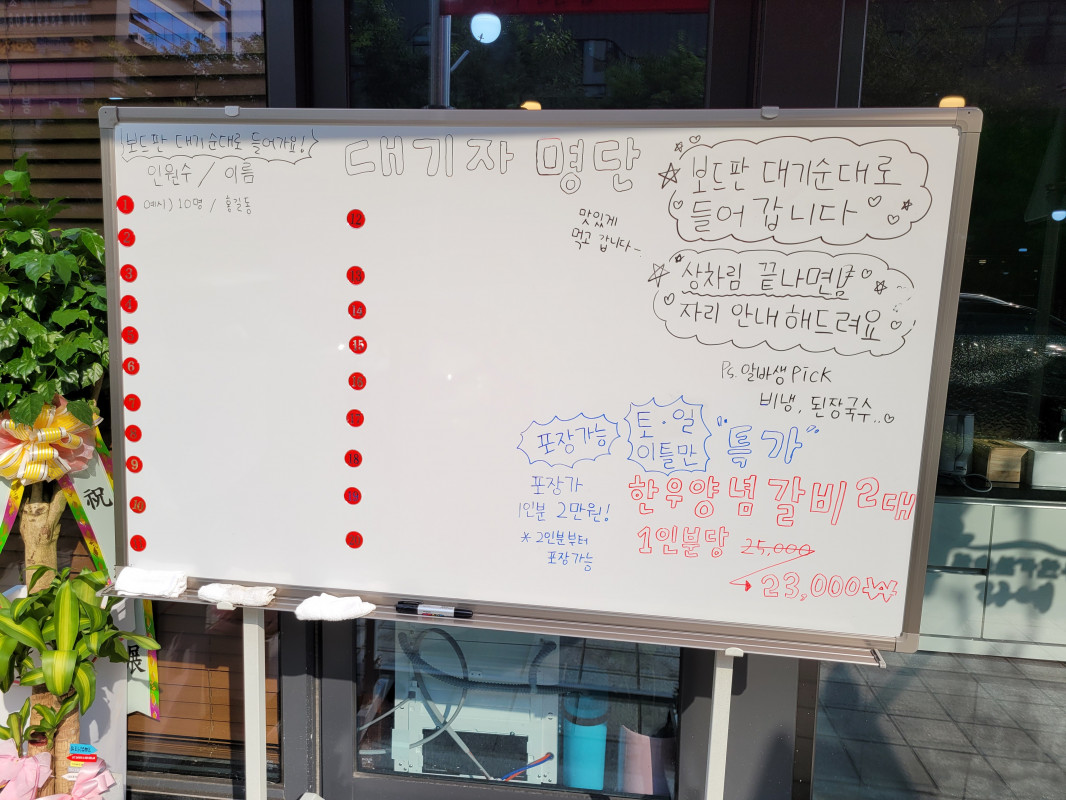 보드판 대기순대로 들어가요!
인원수 / 이름
1 예시) 10명 / 홍길동
2
3
4
5
6
7
8
9
10
대기자 명단
12
13
14
15
16
17
18
맛있게
먹고 갑니다~
보드판 대기순대로
들어 갑니다
상차림 끝나면
자리 안내해드려요
Ps. 알바생 Pick
비냉, 된장국수..
포장가능
포장가
1인분 2만원!
* 2인분부터
포장가능
토·일
이틀만
특가
한우양념갈비 2대
1인분당 25,000
→ 23,000₩
祝
展